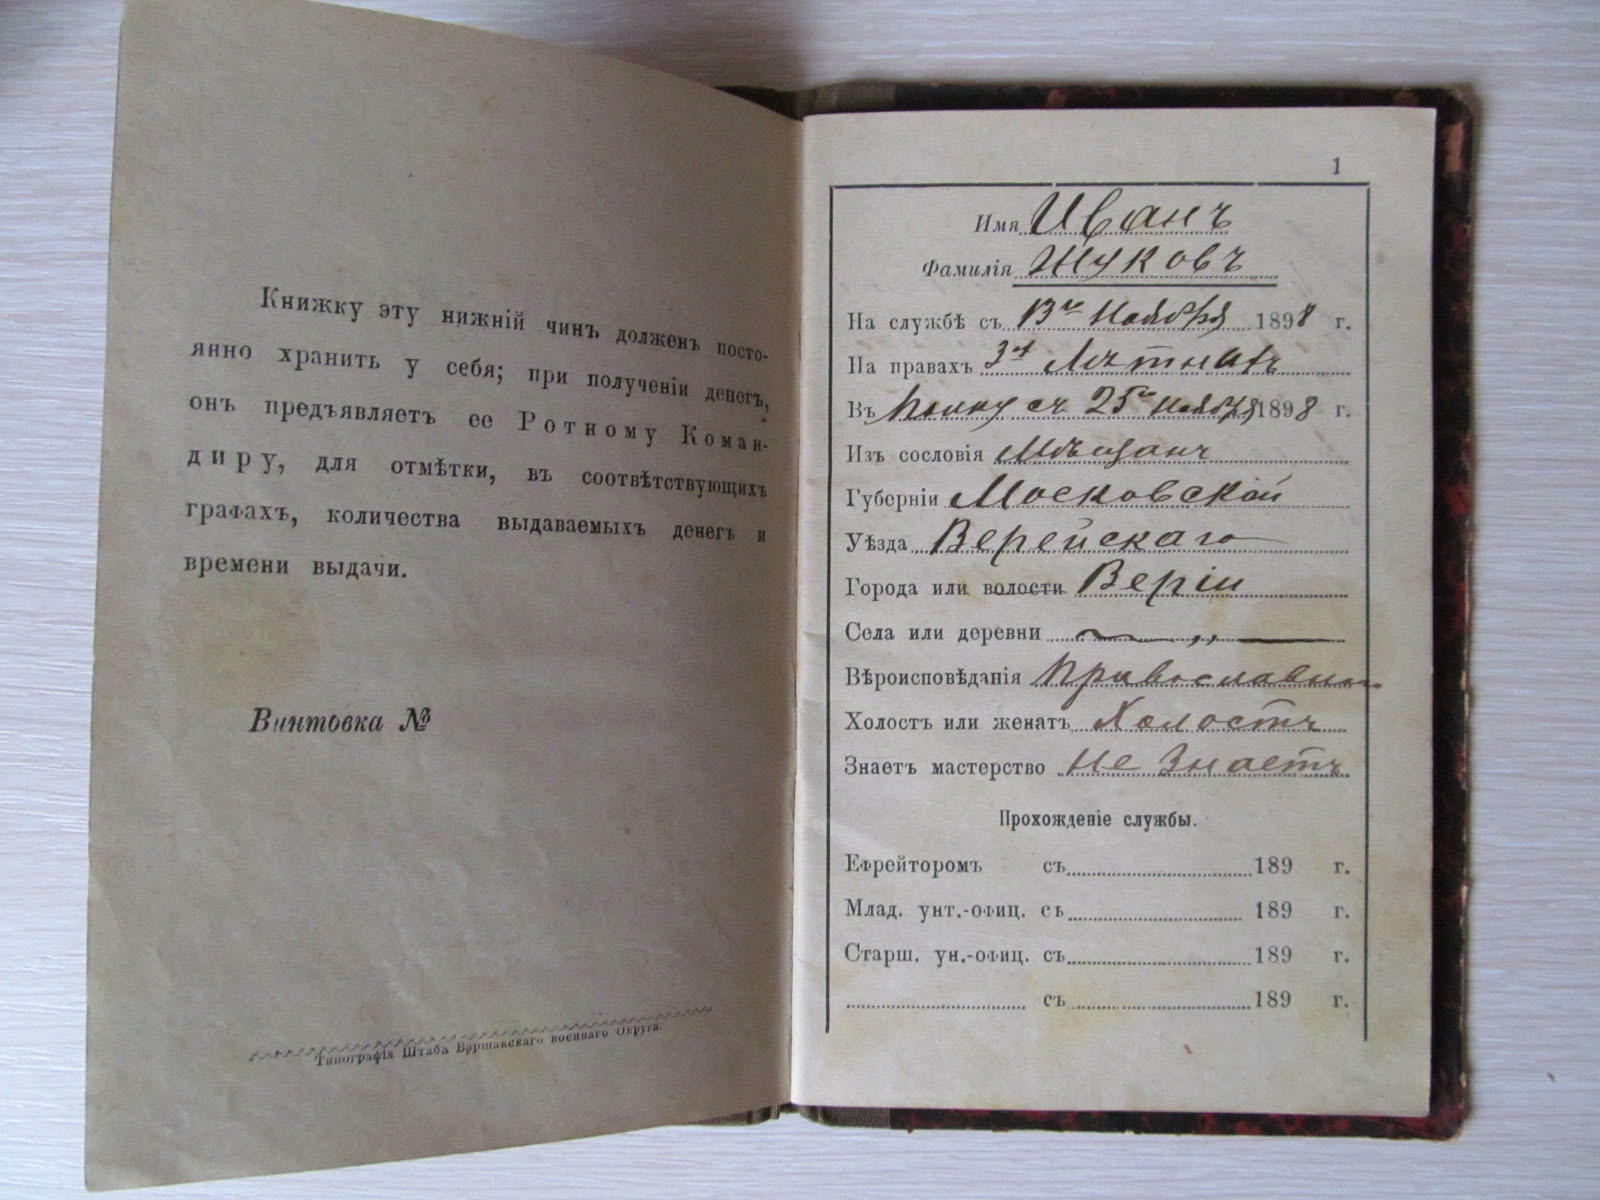 Книжку эту нижній чинъ долженъ посто-
янно хранить у себя; при полученіи денегъ,
онъ предъявляетъ ее Ротному Коман-
диру, для отмѣтки, въ соотвѣтствующихъ
графахъ, количества выдаваемыхъ денегъ и
времени выдачи.
Винтовка №
Типографія Штаба Варшавскаго военнаго Округа.
1
Имя Иванъ
Фамилія Жуковъ
На службѣ съ 13го Ноября 1898 г.
На правахъ 3х лѣтнихъ
Въ Полку съ 25го Ноября 1898 г.
Изъ сословія Мѣщанъ
Губерніи Московской
Уѣзда Верейскаго
Города или волости Веріи
Села или деревни „
Вѣроисповѣданія Православнаго
Холостъ или женатъ Холостъ
Знаетъ мастерство Не Знаетъ
Прохожденіе службы.
Ефрейторомъ съ 189 г.
Млад. унт.-офиц. съ 189 г.
Старш. ун.-офиц. съ 189 г.
съ 189 г.